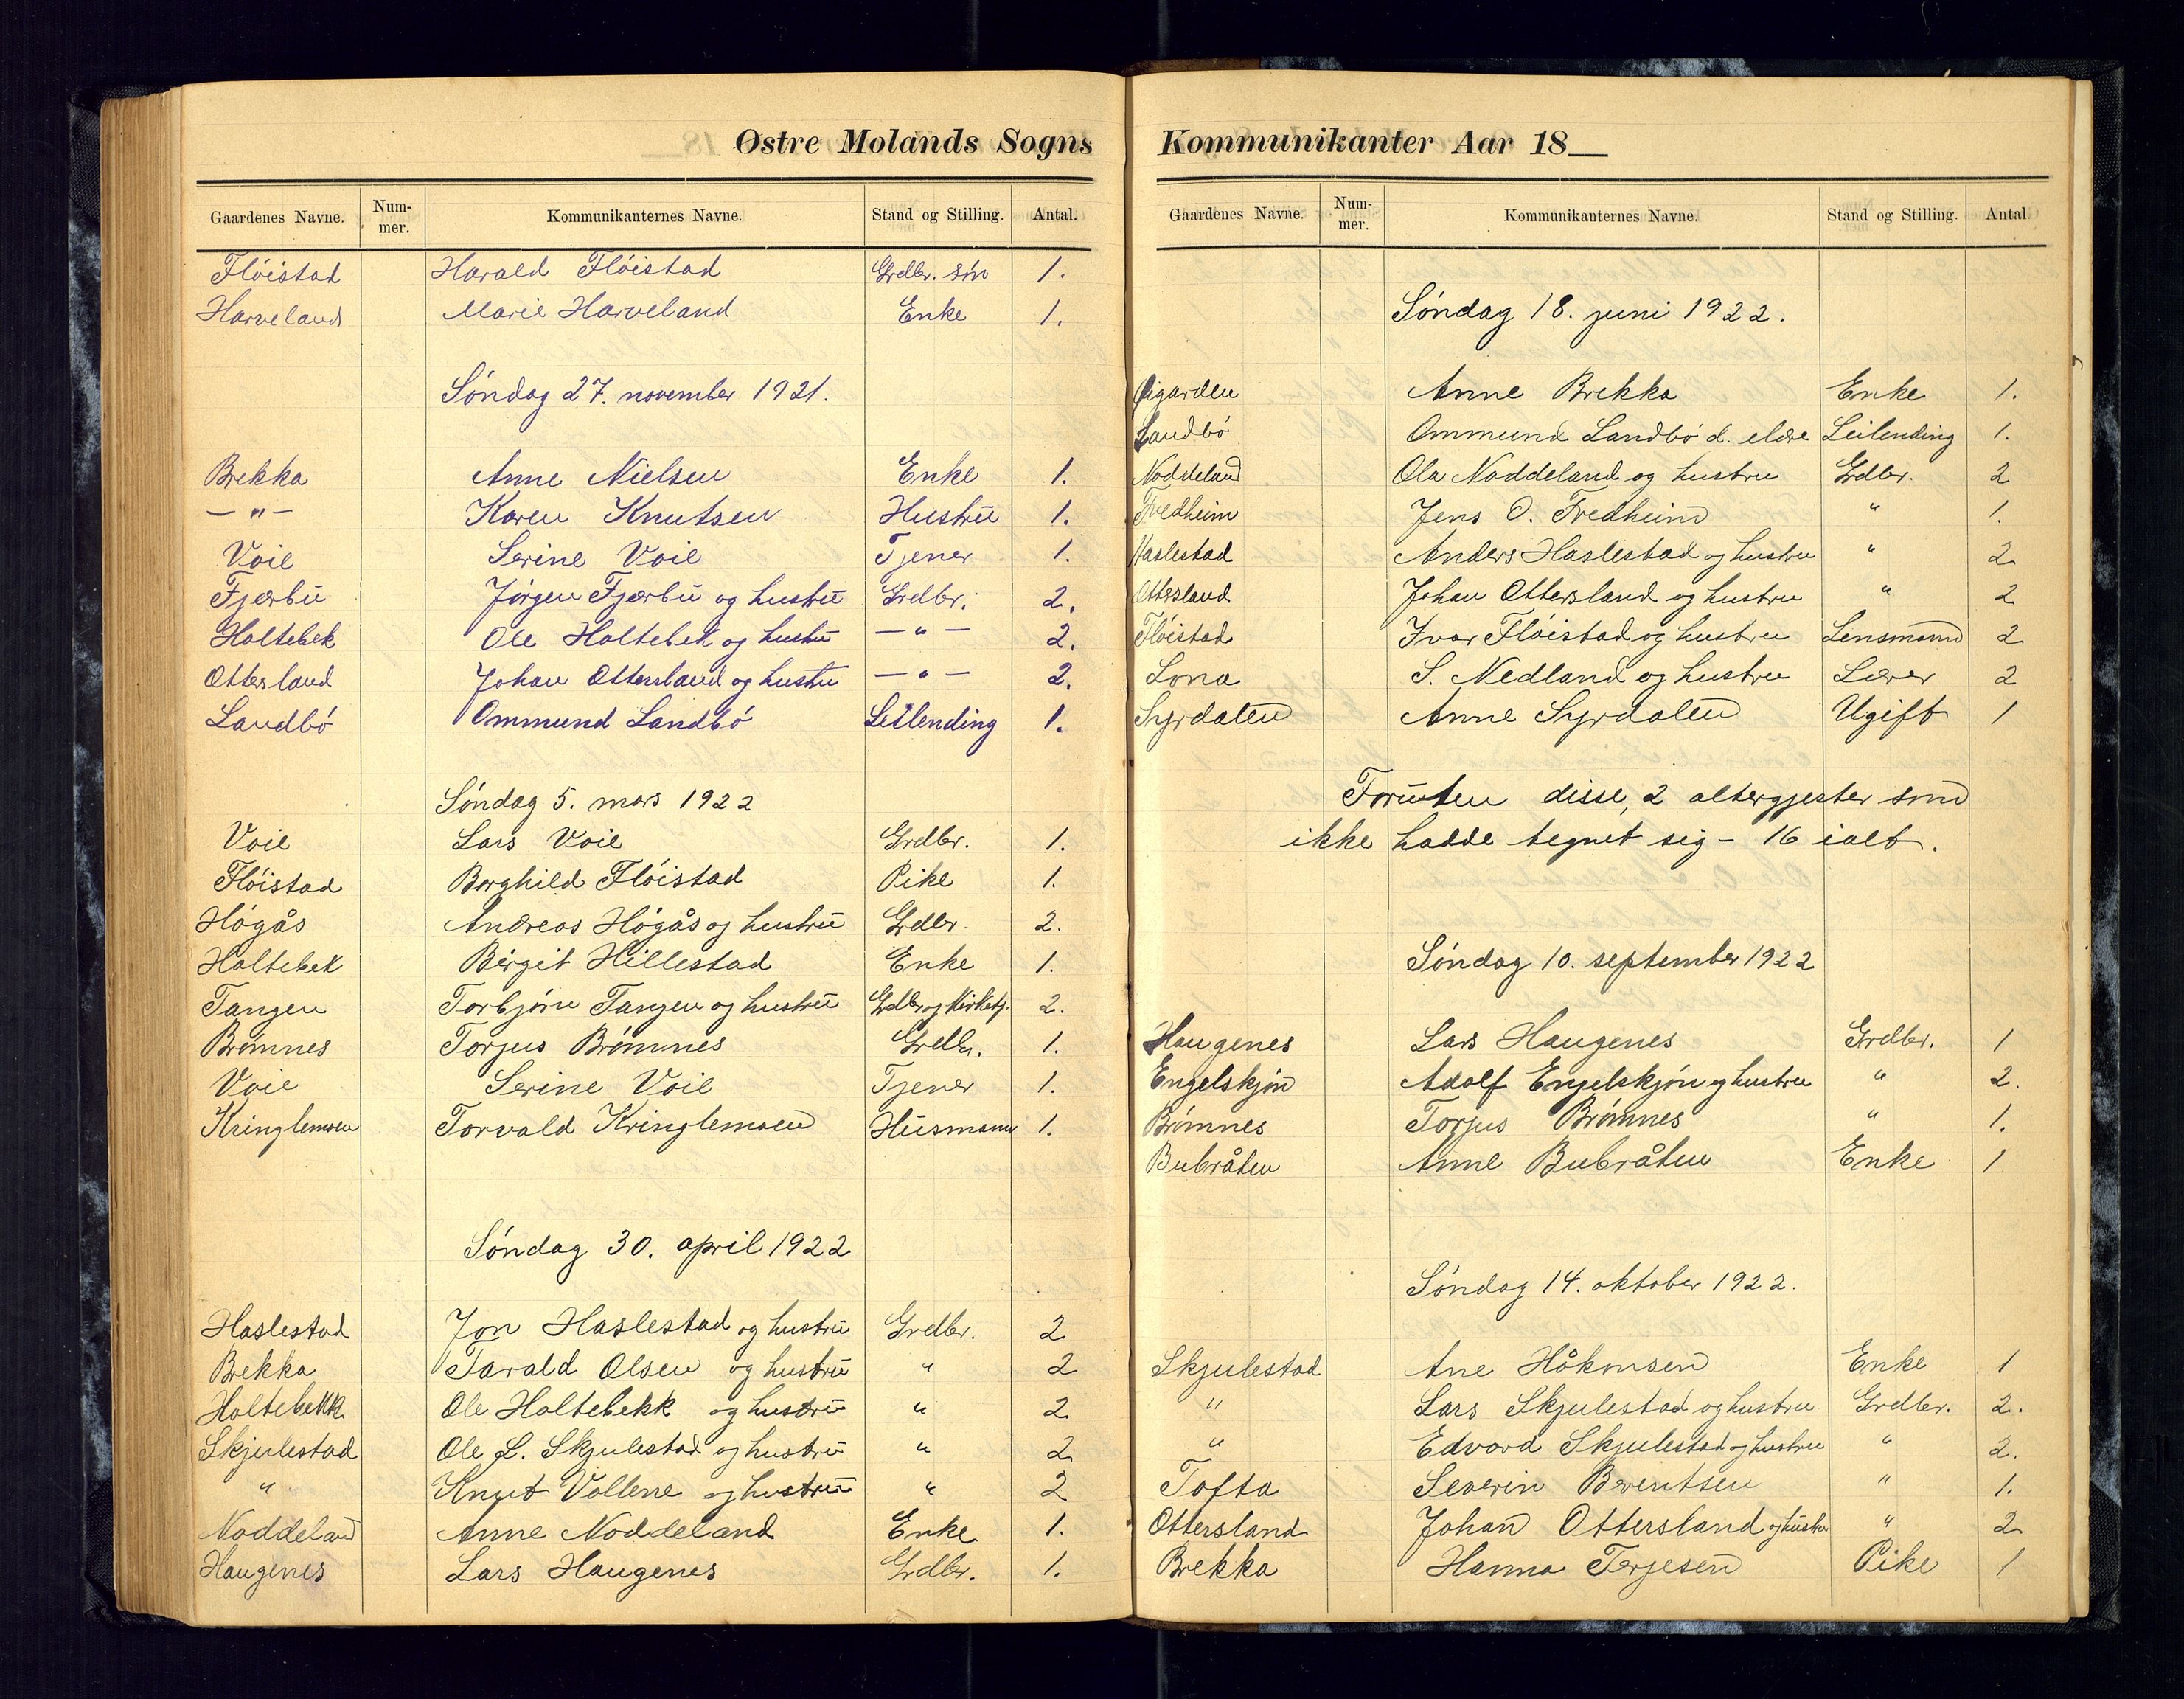 Østre Molands Sogns
Gaardenes Navne. Num-mer. Kommunikanternes Navne. Stand og Stilling. Antal.
Flöistad Harald Flöistad Grdbr. sön 1.
Harveland Marie Harveland Enke 1.
Söndag 27. november 1921.
Brekka Anne Nielsen Enke 1.
— " — Karen Knutsen Hustru 1.
Voie Serine Voie Tjener 1.
Fjærbu Jörgen Fjærbu og hustru Grdbr. 2.
Holtebek Ole Holtebek og hustru — " — 2.
Ottersland Johan Ottersland og hustru — " — 2.
Landbö Ommund Landbö Leilending 1.
Söndag 5. mars 1922
Voie Lars Voie Grdbr. 1.
Flöistad Borghild Flöistad Pike 1.
Högås Andreas Högås og hustru Grdbr. 2.
Holtebek Birgit Hillestad Enke 1.
Tangen Torbjörn Tangen og hustru Grdbr og Kirketj. 2.
Brömnes Torjus Brömnes Grdbr. 1.
Voie Serine Voie Tjener 1.
Kringlemoen Torvald Kringlemoen Husmann 1.
Söndag 30. april 1922
Haslestad Jon Haslestad og hustru Grdbr. 2
Brekka Tarald Olsen og hustru " 2
Holtebekk Ole Holtebekk og hustru " 2
Skjulestad Ole L. Skjulestad og hustru " 2
" Knut Vollene og hustru " 2
Noddeland Anne Noddeland Enke 1.
Haugenes Lars Haugenes Grdbr. 1.
Kommunikanter Aar 18
Gaardenes Navne. Num-mer. Kommunikanternes Navne. Stand og Stilling. Antal.
Söndag 18. juni 1922.
Øigarden Anne Brekka Enke 1.
Landbö Ommund Landbö d. eldre Leilending 1.
Noddeland Ola Noddeland og hustru Grdbr. 2
Fredheim Jens O. Fredheim " 1.
Haslestad Anders Haslestad og hustru " 2
Ottersland Johan Ottersland og hustru " 2
Flöistad Ivar Flöistad og hustru Lensmand 2
Lona S. Nedland og hustru Lærer 2
Syrdalen Anne Syrdalen Ugift 1
Foruten disse, 2 altergjester som
ikke hadde tegnet sig - 16 ialt.
Söndag 10. september 1922
Haugenes Lars Haugenes Grdbr. 1
Engelskjön Adolf Engelskjön og hustru " 2.
Brömnes Torjus Brömnes " 1.
Bubråten Anne Bubråten Enke 1
Söndag 14. oktober 1922.
Skjulestad Ane Håkonsen Enke 1
" Lars Skjulestad og hustru Grdbr. 2.
" Edvard Skjulestad og hustru " 2.
Tofta Severin Berentsen " 1.
Ottersland Johan Ottersland og hustru " 2
Brekka Hanna Terjesen Pike 1